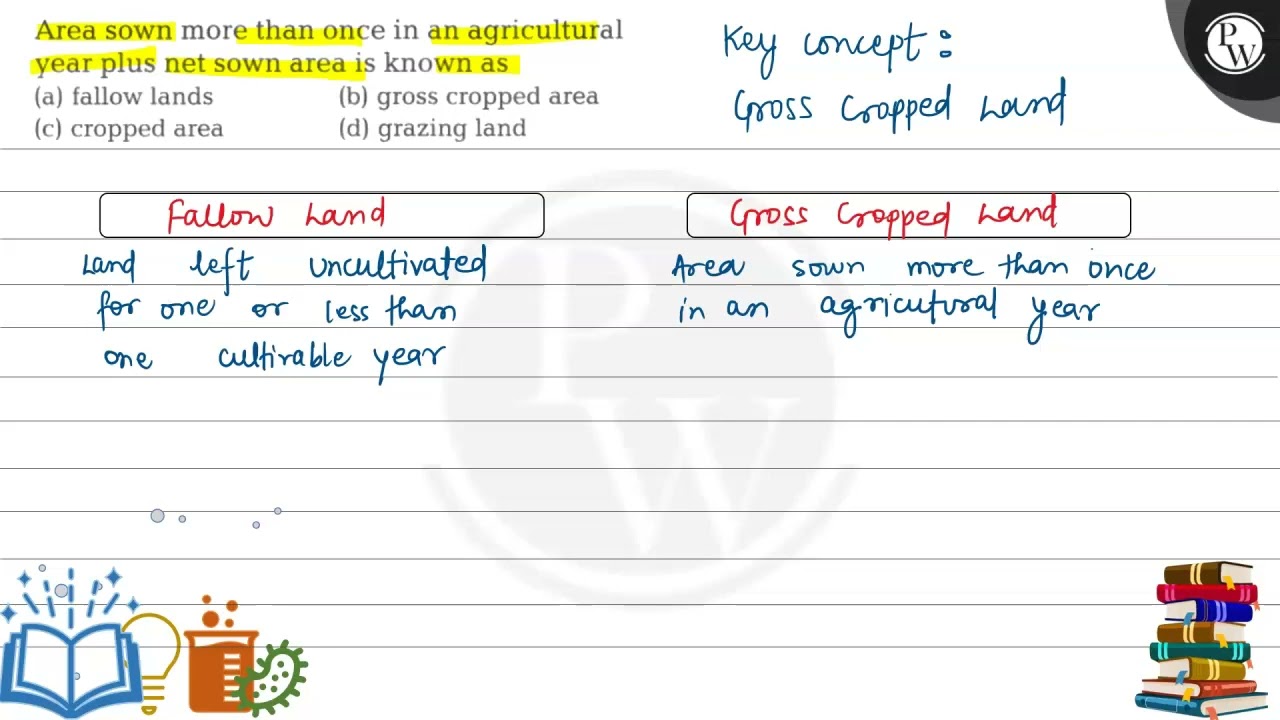 Area sown more than once in an agricultural
year plus net sown area is known as
(a) fallow lands (b) gross cropped area
(c) cropped area (d) grazing land
Key concept:
Gross Cropped Land
PW
Fallow Land
Land left uncultivated
for one or less than
one cultivable year
Gross Cropped Land
Area sown more than once
in an agricutural year
PW